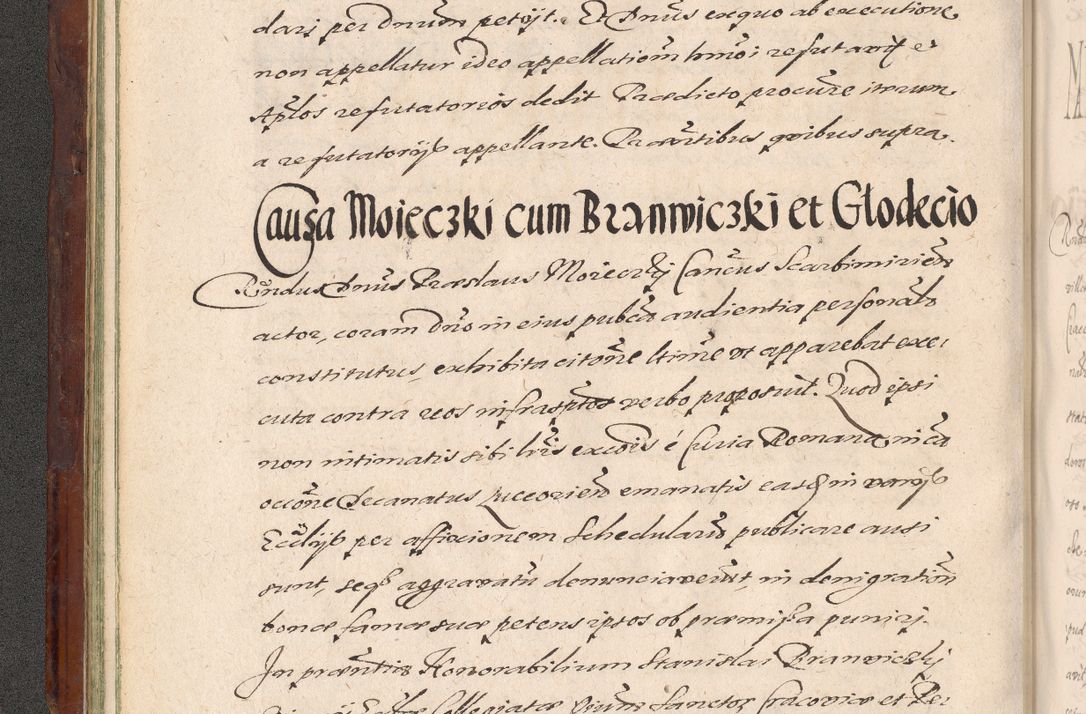 dari per Dnum petijt. Et Dnus exquo ab executione
non appellatur ideo appellationem hmoi refutavit e
Aplos refutatorios dedit Praedicto procure iterum
a refutatorijs appellante. Praesentibus quibus supra
Causa Moieczki cum Branwiczki et Glodecio
Rndus Dnus Praeslaus Moieczky Cancus Scarbimirien
actor, coram Dno in eius publca audientia personalr
constitutus, exhibita citone ltime ut apparebat exe-
cuta contra reos infrasptos verbo proposuit. Quod ipsi
non intimatis sibi lris excois è Curia Romana, in ca
occone Decanatus Luceorien emanatis easq in varijs
Ecclijs per affixionem Schedularu publicare ausi
sunt, seq aggravatu denunciaverut, in denigration
bonae famae suae petens ipsos ob praemissa puniri.
In praentia Honorabilium Stanislai Branwiczky
Collegiatae Oium Sanctor Cracoviae et